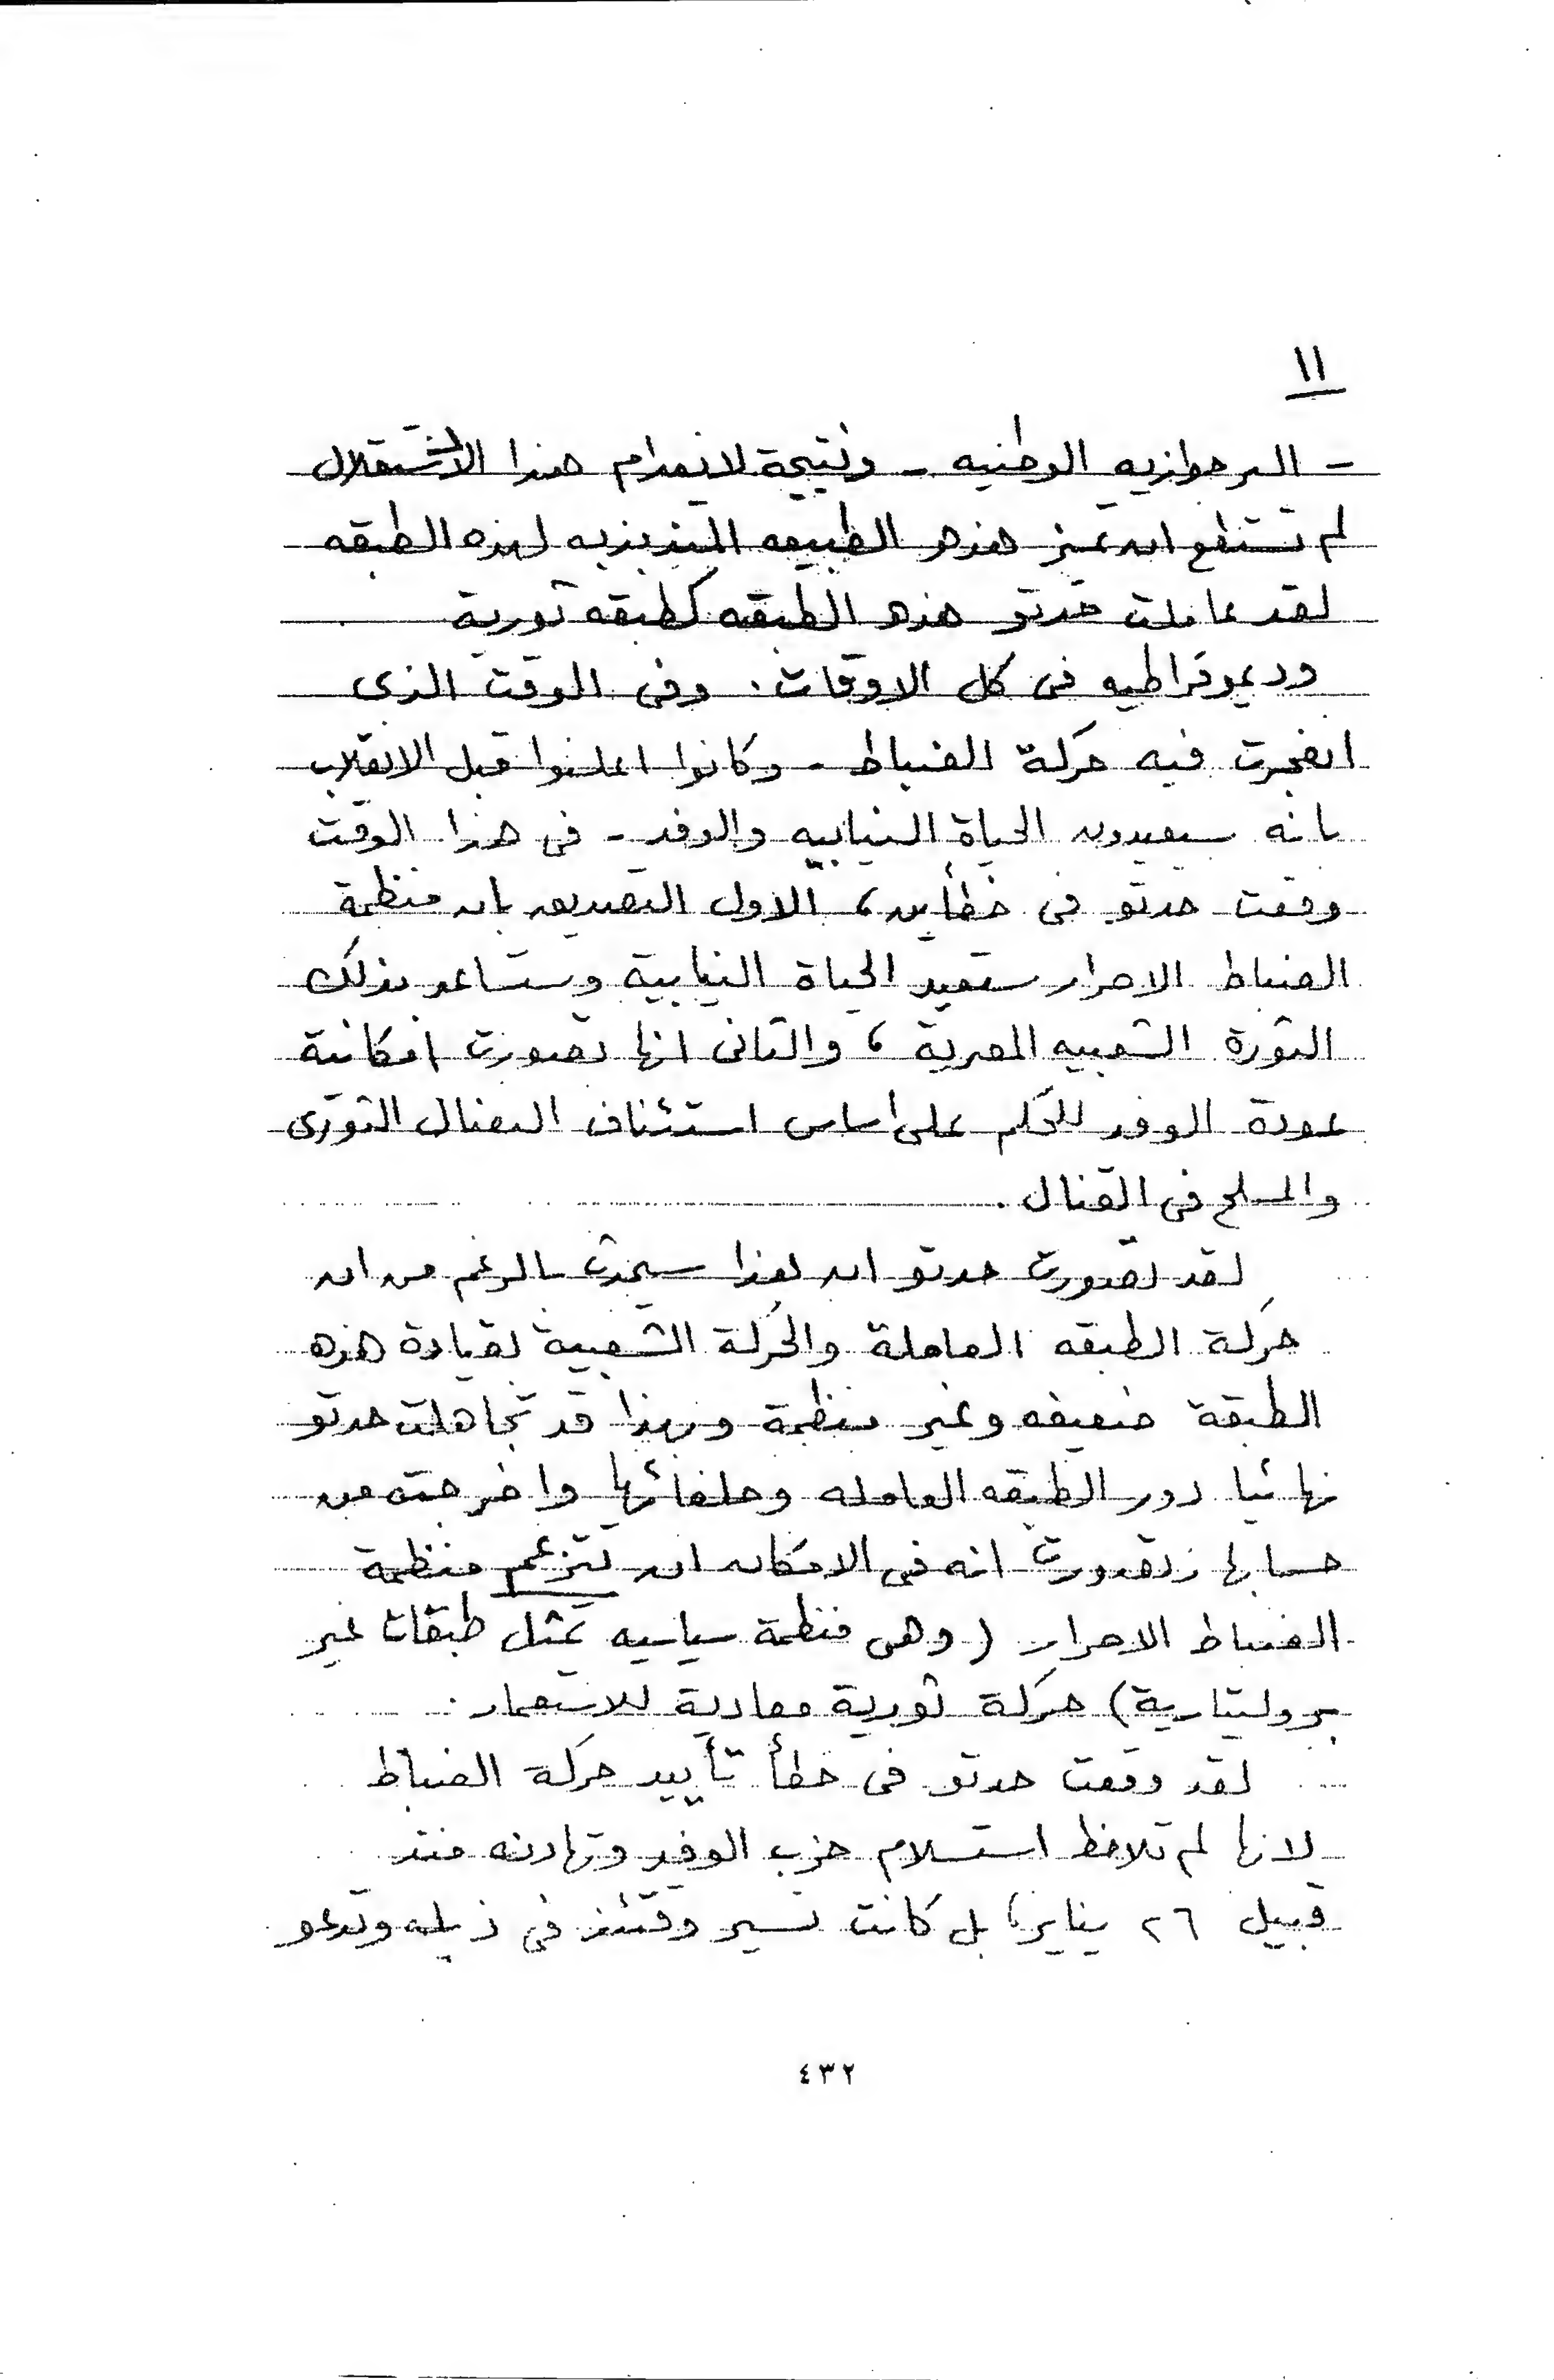 ١١
- البرجوازيه الوطنيه - ونتيجة لانعدام هذا الاستقلال
لم تستطع ان تميز هذه الطبيعه المتذبذبه لهذه الطبقه
لقد عاملت حدتو هذه الطبقه كطبقه ثورية
وديموقراطيه فى كل الاوقات . وفى الوقت الذى
انفجرت فيه حركة الضباط - وكانوا اعلنوا قبل الانقلاب
بانه سيعيدون الحياة النيابيه والوفد - فى هذا الوقت
وقعت حدتو فى خطأين ، الاول التصديق بان منظمة
الضباط الاحرار ستعيد الحياة النيابية وستساعد بذلك
الثورة الشعبيه المصرية ، والثانى انها تصورت امكانية
عودة الوفد للحكم على أساس استئناف النضال الثورى
والمسلح فى القنال .
لقد تصورت حدتو ان هذا سيحدث بالرغم من ان
حركة الطبقه العاملة والحركة الشعبية بقيادة هذه
الطبقة ضعيفه وغير منظمة وبهذا قد تجاهلت حدتو
نهائيا دور الطبقه العامله وحلفائها واخرجته من
حسابها وتصورت انه فى الامكان ان تتزعم منظمة
الضباط الاحرار ( وهى منظمة سياسيه تمثل طبقات غير
بروليتارية ) حركة ثورية معادية للاستعمار .
لقد وقعت حدتو فى خطأ تأييد حركة الضباط
لانها لم تلاحظ استسلام حزب الوفد وتهادنه منذ
قبيل ٢٦ يناير، بل كانت تسير وقتئذ فى ذيله وتدعو
٤٣٢